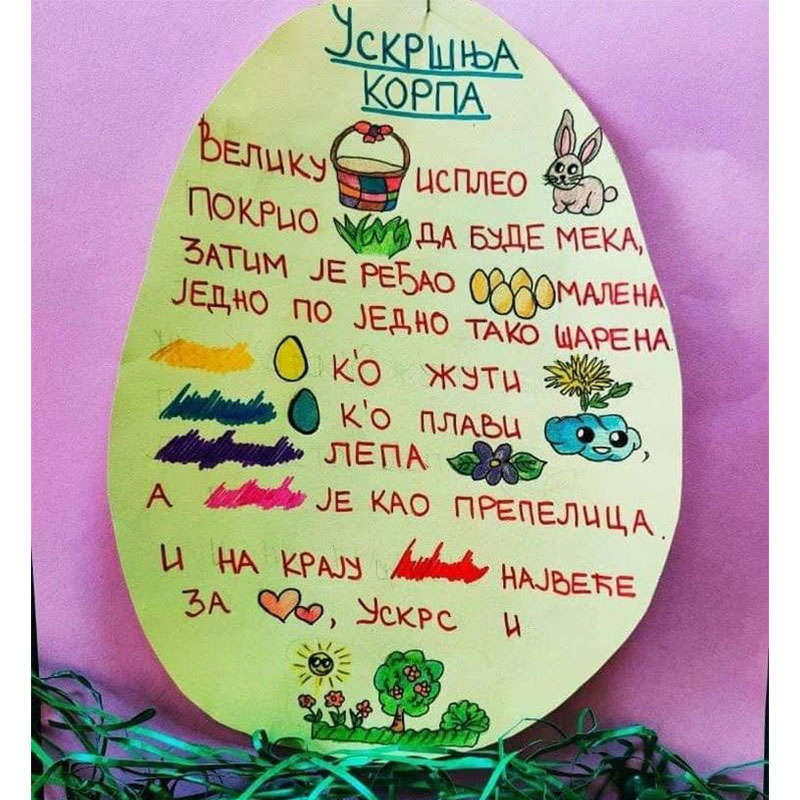 Ускршња
корпа
Велику исплео
покрио да буде мека,
затим је ређао малена
једно по једно тако шарена.
к'о жути
к'о плави ,
лепа
а је као препелица.
и на крају највеће
за , Ускрс и